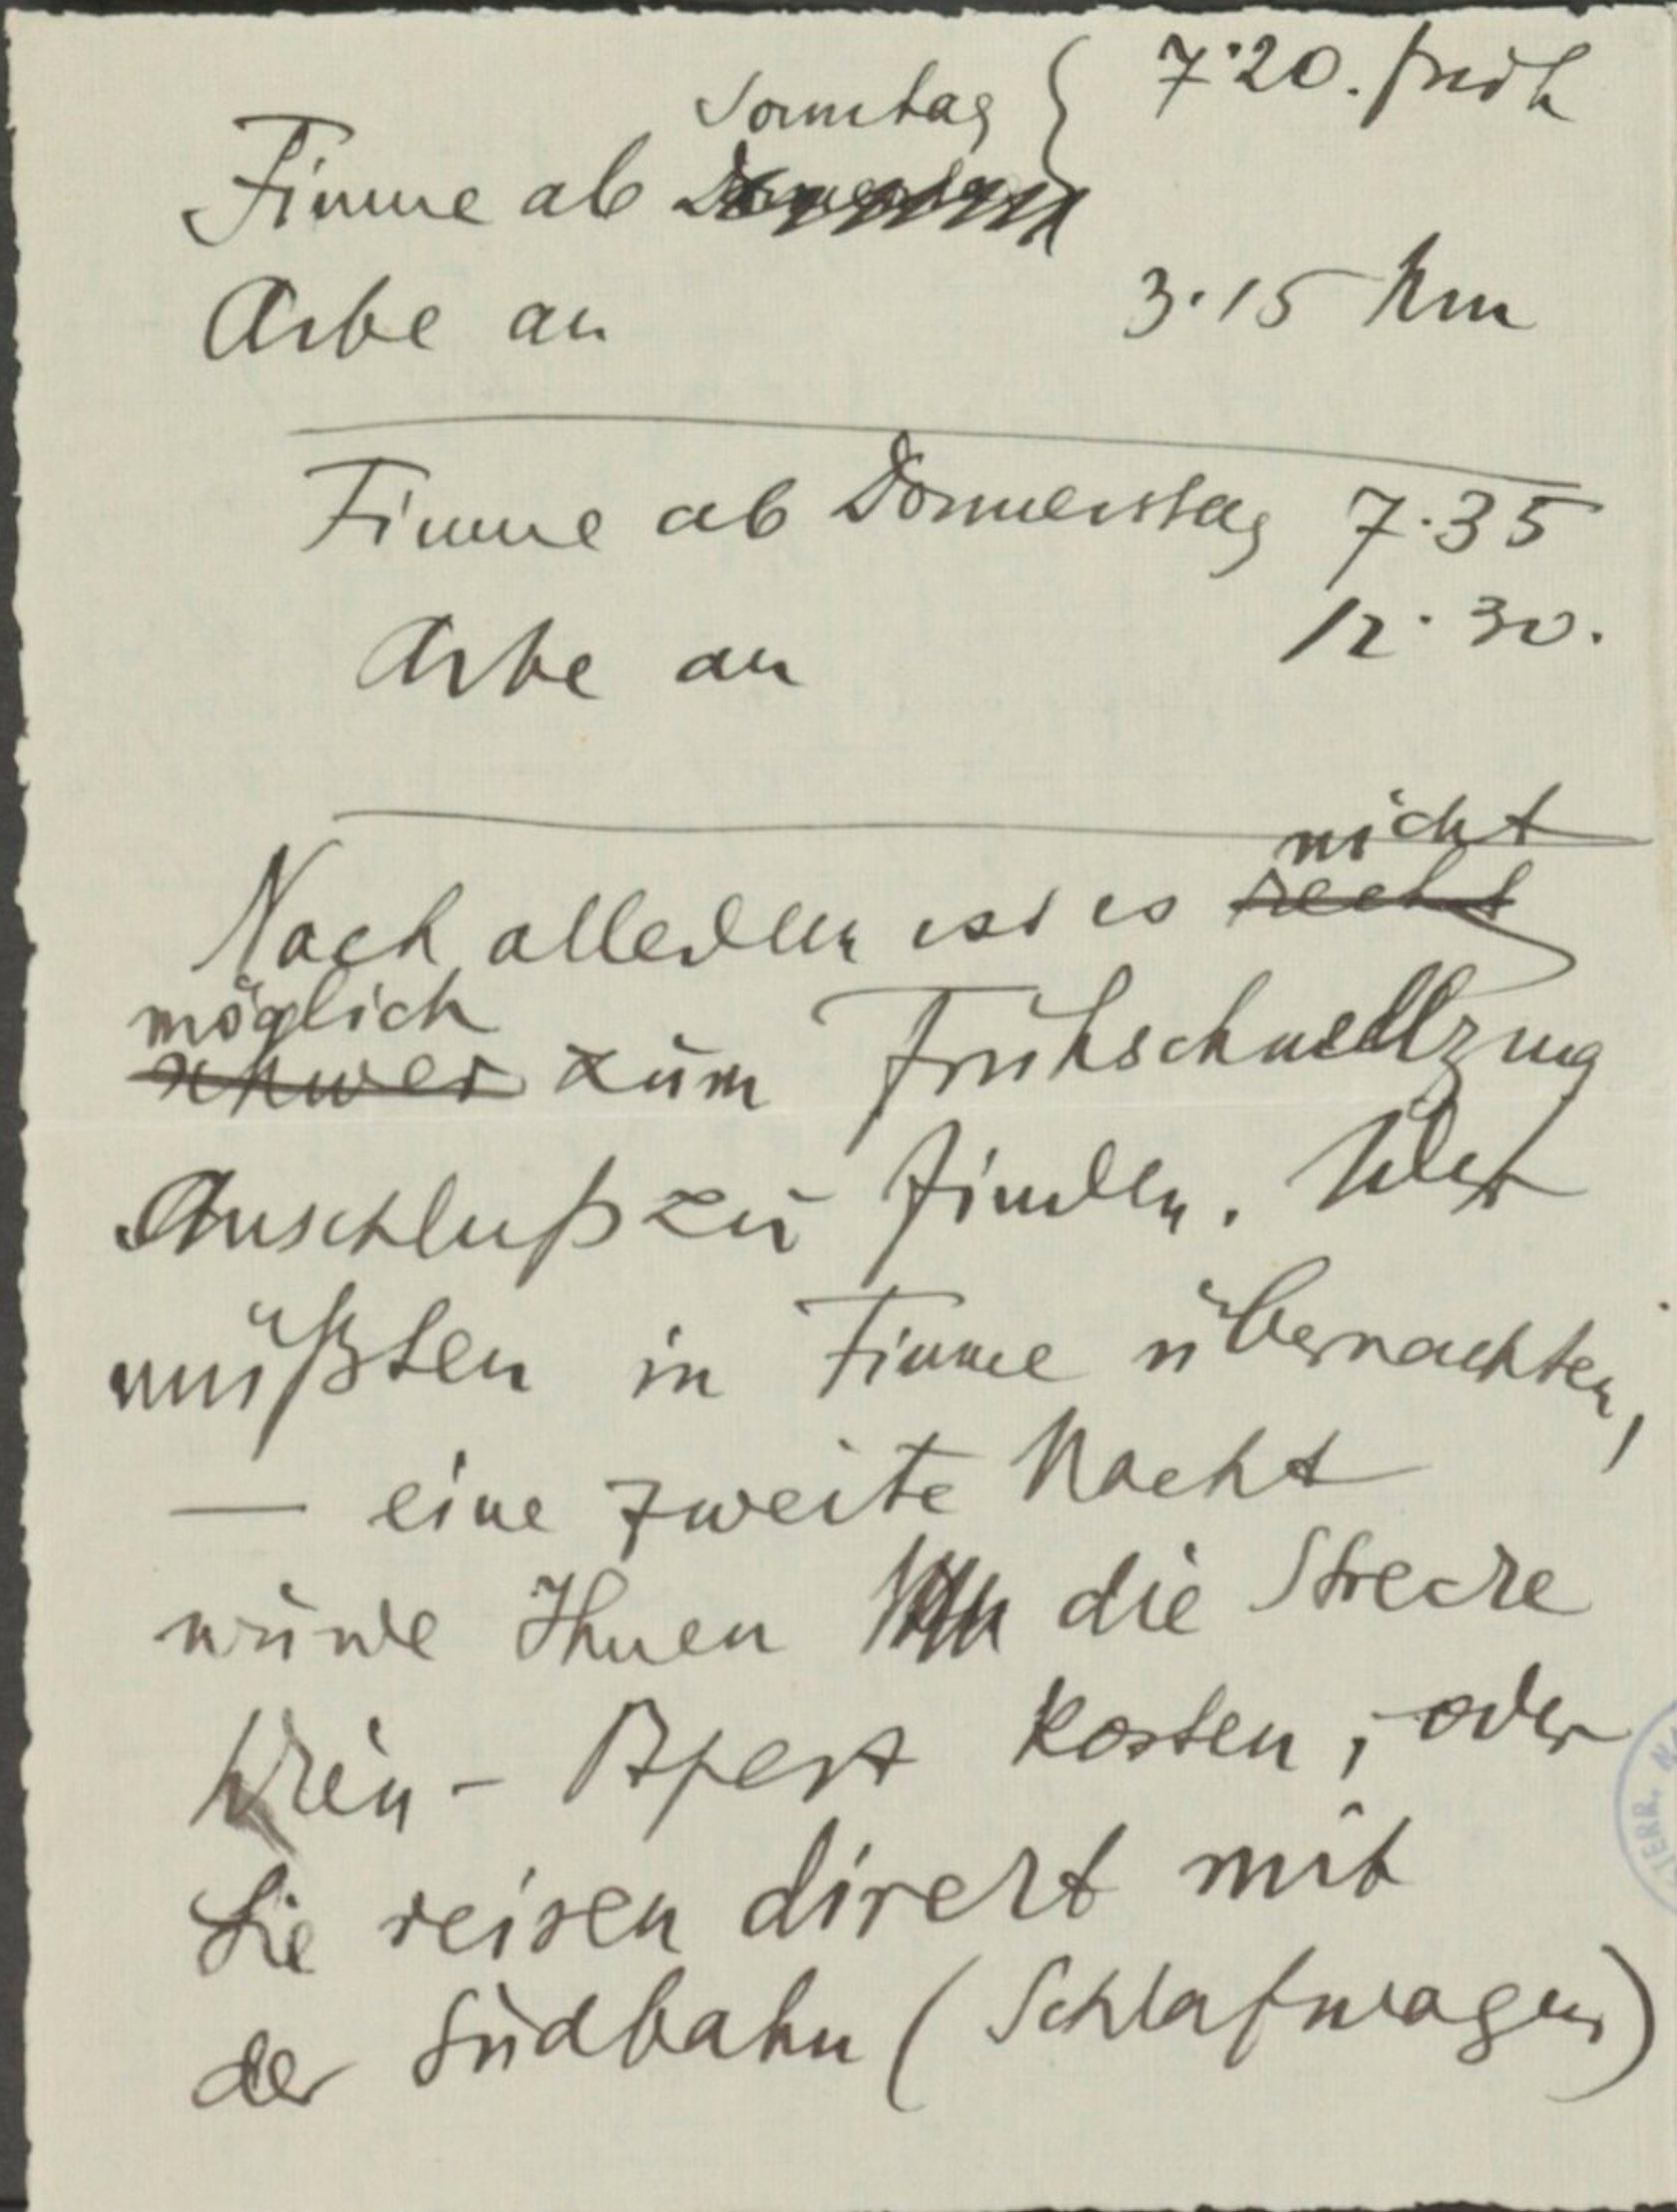 Sonntag { 7·20. früh
Fiume ab
Arbe an 3·15 Nm
Fiume ab Donnerstag 7·35
Arbe an 12·30.
nicht
Nach alledem ist es recht
möglich
schwer zum Frühschnellzug
Anschluß zu finden. Wir
müßten in Fiume übernachten,
— eine zweite Nacht
würde Ihnen die Strecke
Wien – Bpest kosten; oder
Sie reisen direkt mit
der Südbahn (Schlafwagen)
TERR.